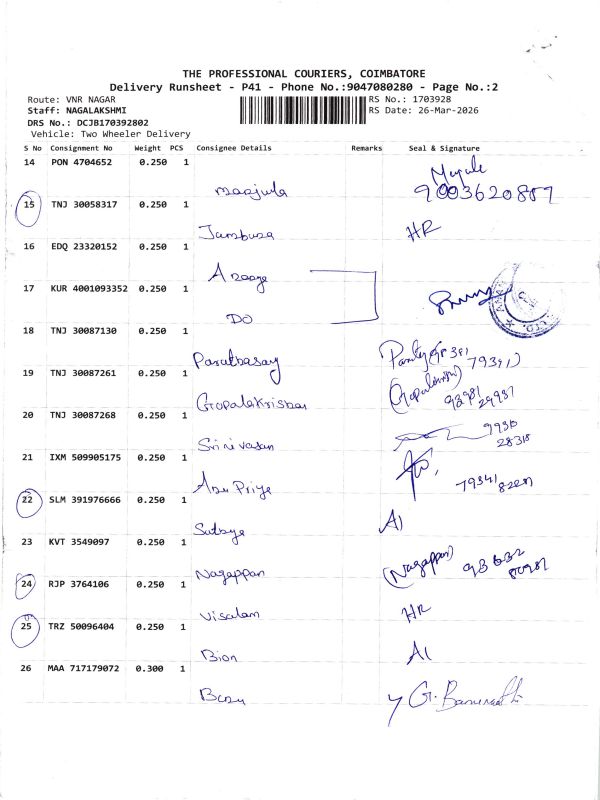 THE PROFESSIONAL COURIERS, COIMBATORE
Delivery Runsheet - P41 - Phone No.:9047080280 - Page No.:2
Route: VNR NAGAR RS No.: 1703928
Staff: NAGALAKSHMI RS Date: 26-Mar-2026
DRS No.: DCJB170392802
Vehicle: Two Wheeler Delivery
S No Consignment No Weight PCS Consignee Details Remarks Seal & Signature
14 PON 4704652 0.250 1
Manjula 9003620857
15 TNJ 30058317 0.250 1
HR
16 EDQ 23320152 0.250 1
17 KUR 4001093352 0.250 1
DO
18 TNJ 30087130 0.250 1
79341
19 TNJ 30087261 0.250 1
Gopalakrishnan
20 TNJ 30087268 0.250 1
Srinivasan 9930
28318
21 IXM 509905175 0.250 1
Anu Priya 79341
22 SLM 391976666 0.250 1
Sathya A1
23 KVT 3549097 0.250 1
Nagappan (Nagappan)
24 RJP 3764106 0.250 1
Visalam HR
25 TRZ 50096404 0.250 1
Bion A1
26 MAA 717179072 0.300 1